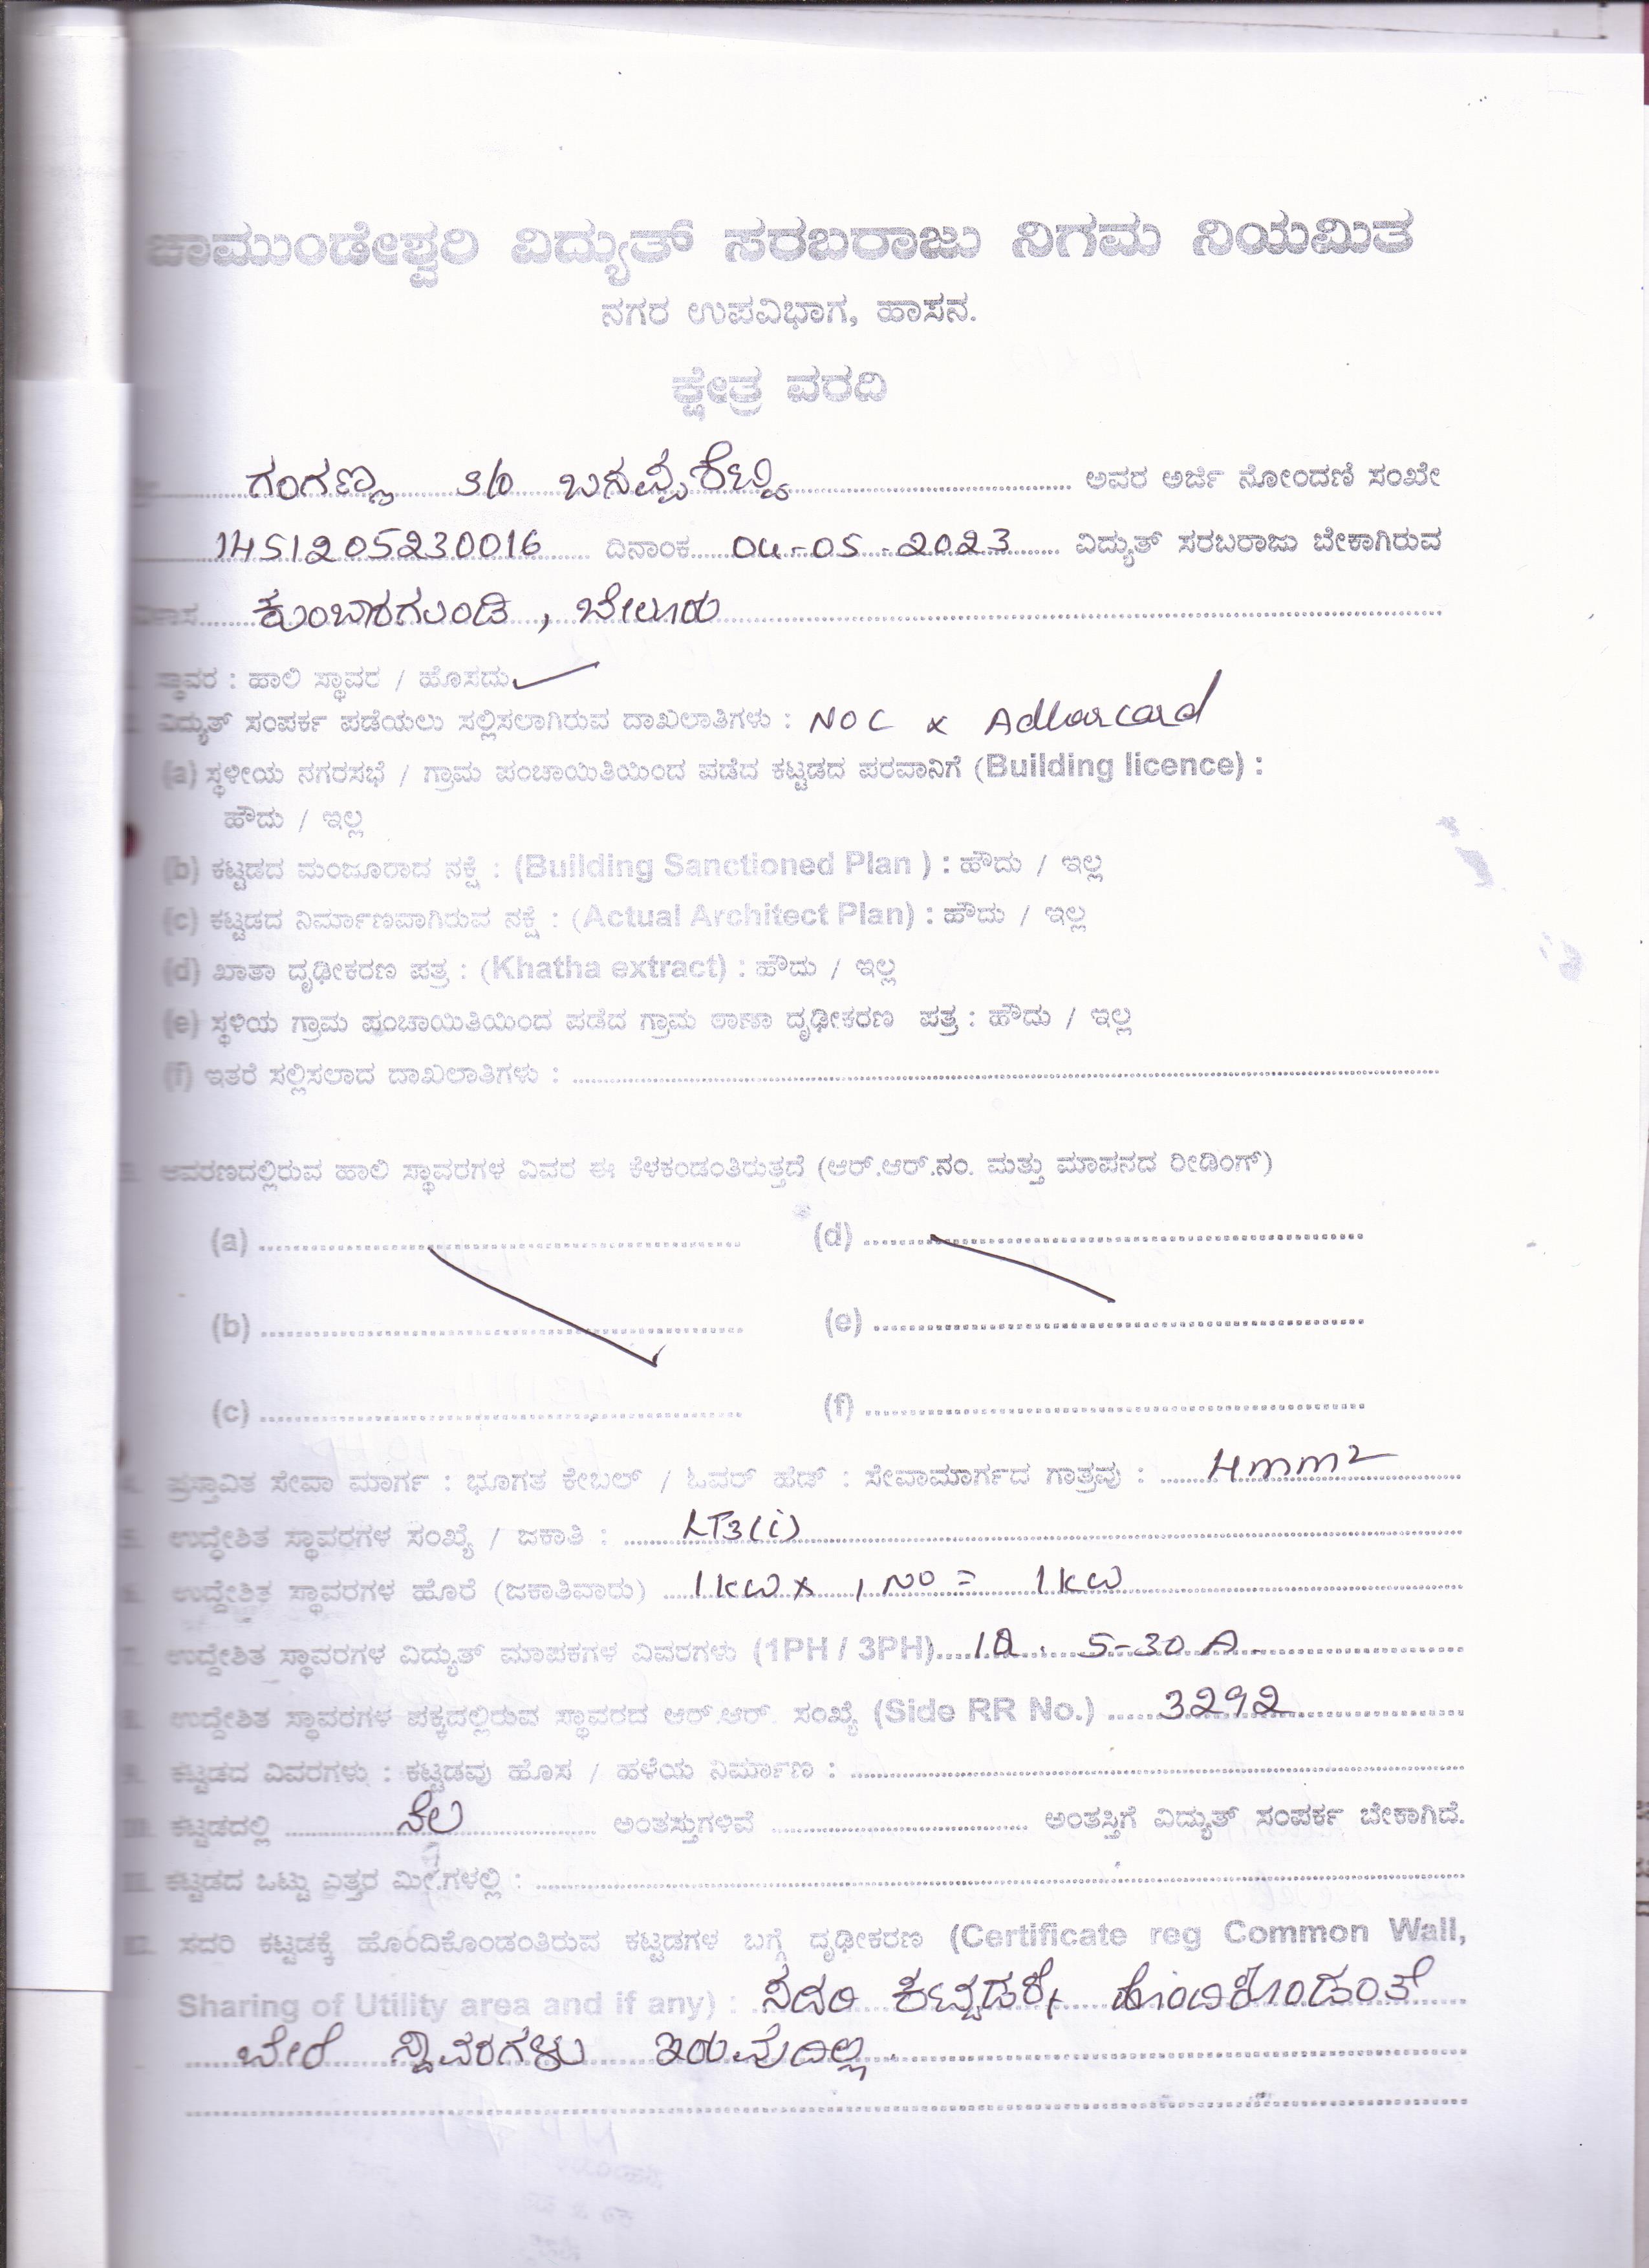 ಚಾಮುಂಡೇಶ್ವರಿ ವಿದ್ಯುತ್ ಸರಬರಾಜು ನಿಗಮ ನಿಯಮಿತ
ನಗರ ಉಪವಿಭಾಗ, ಹಾಸನ.
ಕ್ಷೇತ್ರ ವರದಿ
ಗಂಗಣ್ಣ S/o ಅವರ ಅರ್ಜಿ ನೋಂದಣಿ ಸಂಖೇ
1451205230016 ದಿನಾಂಕ 04-05-2023 ವಿದ್ಯುತ್ ಸರಬರಾಜು ಬೇಕಾಗಿರುವ
ಕುಂಬಾರಗುಂಡಿ, ಬೇಲೂರು
ಸ್ಥಾವರ : ಹಾಲಿ ಸ್ಥಾವರ / ಹೊಸದು
ವಿದ್ಯುತ್ ಸಂಪರ್ಕ ಪಡೆಯಲು ಸಲ್ಲಿಸಲಾಗಿರುವ ದಾಖಲಾತಿಗಳು : NOC x Adharcard
(a) ಸ್ಥಳೀಯ ನಗರಸಭೆ / ಗ್ರಾಮ ಪಂಚಾಯಿತಿಯಿಂದ ಪಡೆದ ಕಟ್ಟಡದ ಪರವಾನಿಗೆ (Building licence) :
ಹೌದು / ಇಲ್ಲ
(b) ಕಟ್ಟಡದ ಮಂಜೂರಾದ ನಕ್ಷೆ : (Building Sanctioned Plan ) : ಹೌದು / ಇಲ್ಲ
(c) ಕಟ್ಟಡದ ನಿರ್ಮಾಣವಾಗಿರುವ ನಕ್ಷೆ : (Actual Architect Plan) : ಹೌದು / ಇಲ್ಲ
(d) ಖಾತಾ ದೃಢೀಕರಣ ಪತ್ರ : (Khatha extract) : ಹೌದು / ಇಲ್ಲ
(e) ಸ್ಥಳಿಯ ಗ್ರಾಮ ಪಂಚಾಯಿತಿಯಿಂದ ಪಡೆದ ಗ್ರಾಮ ಠಾಣಾ ದೃಢೀಕರಣ ಪತ್ರ : ಹೌದು / ಇಲ್ಲ
(f) ಇತರೆ ಸಲ್ಲಿಸಲಾದ ದಾಖಲಾತಿಗಳು :
ಆವರಣದಲ್ಲಿರುವ ಹಾಲಿ ಸ್ಥಾವರಗಳ ವಿವರ ಈ ಕೆಳಕಂಡಂತಿರುತ್ತದೆ (ಆರ್.ಆರ್.ನಂ. ಮತ್ತು ಮಾಪನದ ರೀಡಿಂಗ್)
(a) (d)
(b) (e)
(c) (f)
4. ಪ್ರಸ್ತಾವಿತ ಸೇವಾ ಮಾರ್ಗ : ಭೂಗತ ಕೇಬಲ್ / ಓವರ್ ಹೆಡ್ : ಸೇವಾಮಾರ್ಗದ ಗಾತ್ರವು : 4mm2
5. ಉದ್ಧೇಶಿತ ಸ್ಥಾವರಗಳ ಸಂಖ್ಯೆ / ಜಕಾತಿ : LT3(i)
6. ಉದ್ದೇಶಿತ ಸ್ಥಾವರಗಳ ಹೊರೆ (ಜಕಾತಿವಾರು) 1KW x 1 NO = 1KW
7. ಉದ್ದೇಶಿತ ಸ್ಥಾವರಗಳ ವಿದ್ಯುತ್ ಮಾಪಕಗಳ ವಿವರಗಳು (1PH / 3PH) 5-30 A.
8. ಉದ್ದೇಶಿತ ಸ್ಥಾವರಗಳ ಪಕ್ಕದಲ್ಲಿರುವ ಸ್ಥಾವರದ ಆರ್.ಆರ್. ಸಂಖ್ಯೆ (Side RR No.) 3292
9. ಕಟ್ಟಡದ ವಿವರಗಳು : ಕಟ್ಟಡವು ಹೊಸ / ಹಳೆಯ ನಿರ್ಮಾಣ :
10. ಕಟ್ಟಡದಲ್ಲಿ ನೆಲ ಅಂತಸ್ತುಗಳಿವೆ ಅಂತಸ್ತಿಗೆ ವಿದ್ಯುತ್ ಸಂಪರ್ಕ ಬೇಕಾಗಿದೆ.
11. ಕಟ್ಟಡದ ಒಟ್ಟು ಎತ್ತರ ಮೀ.ಗಳಲ್ಲಿ :
12. ಸದರಿ ಕಟ್ಟಡಕ್ಕೆ ಹೊಂದಿಕೊಂಡಂತಿರುವ ಕಟ್ಟಡಗಳ ಬಗ್ಗೆ ದೃಢೀಕರಣ (Certificate reg Common Wall,
Sharing of Utility area and if any) : ಸದರಿ ಕಟ್ಟಡಕ್ಕೆ ಹೊಂದಿಕೊಂಡಂತೆ
ಬೇರೆ ಸ್ಥಾವರಗಳು ಇರುವುದಿಲ್ಲ.